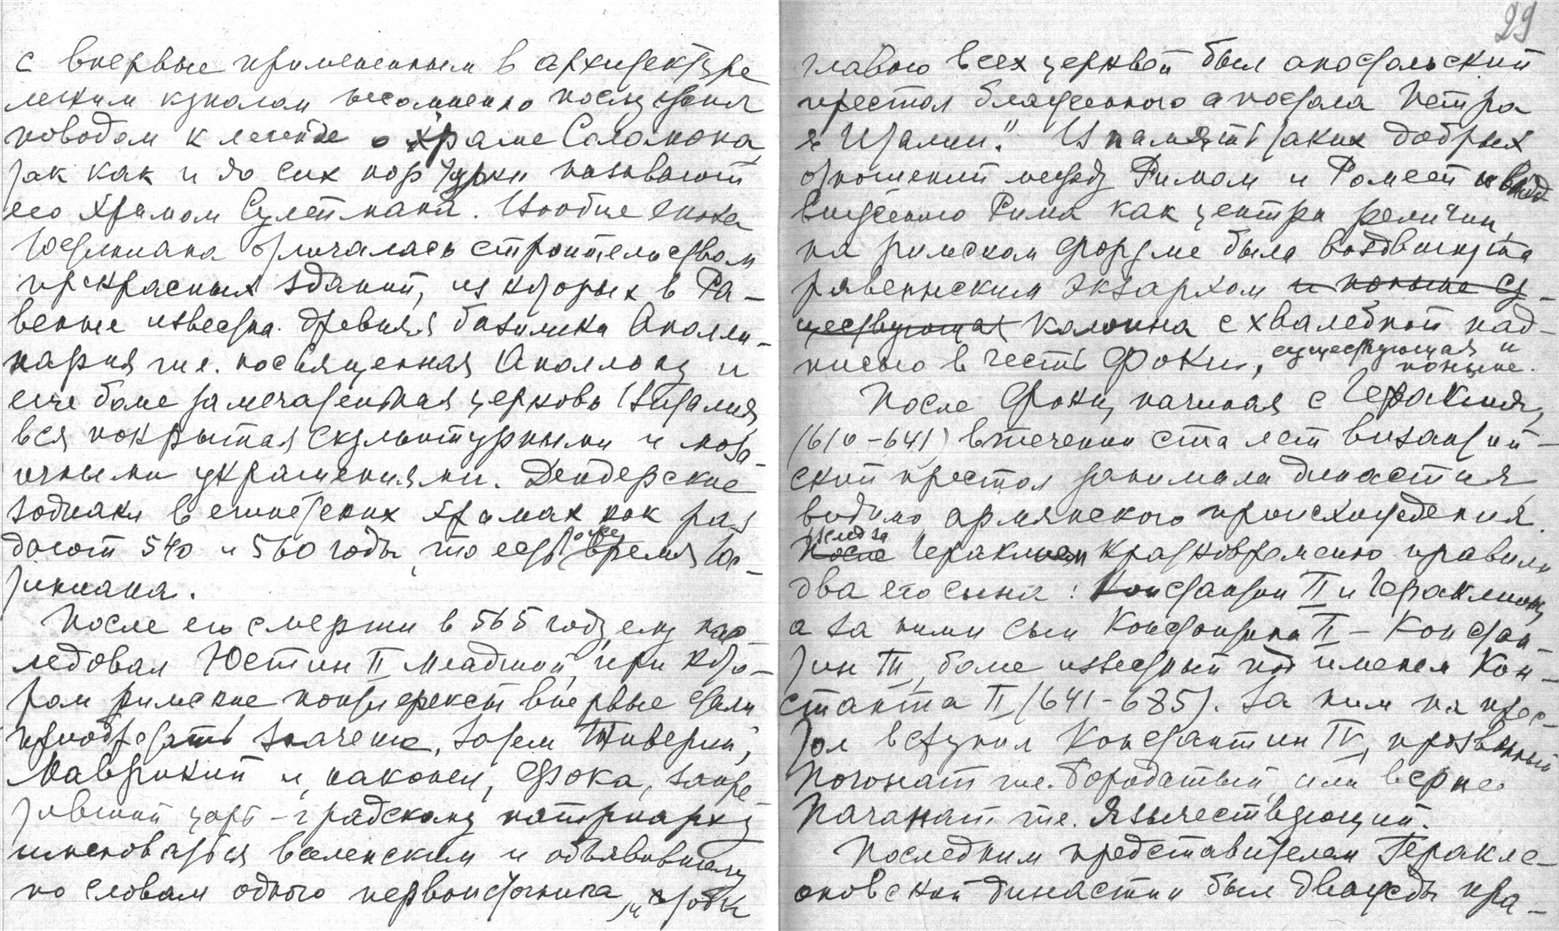 с впервые примененным в архитектуре
легким куполом несомненно послужила
поводом к легенде о храме Соломона,
так как и до сих пор турки называют
его храмом Сулеймана. Вообще эпоха
Юстиниана отличалась строительством
прекрасных зданий, из которых в Ра-
венне известна древняя базилика Аполли-
нария т.е. посвященная Аполлону и
еще более замечательная церковь Виталия,
вся покрытая скульптурными и моза-
ичными украшениями. Дендерские
зодиаки в египетских храмах как раз
дают 540 и 560 годы, то есть тоже время Юс-
тиниана.
После его смерти в 565 году ему нас
ледовал Юстин II Младший, при кото-
ром римские понтифексы впервые стали
приобретать значение, затем Тиверий,
Маврикий и, наконец, Фока, запре-
тивший царь-градскому патриарху
именоваться вселенским и объявивший,
по словам одного первоисточника, „чтобы
29
главою всех церквей был апостольский
престол блаженного апостола Петра
в Италии." В память таких добрых
отношений между Римом и Ромеей и
Римa как центра религии,
на римском форуме была воздвигнута
равеннским экзархом и поныне су-
ществующая колонна с хвалебной над-
писью в честь Фоки, существующая и
поныне.
После Фоки, начиная с Гераклия,
(610-641) в течении ста лет византий-
ский престол занимала династия
видимо армянского происхождения.
После вслед за Гераклием кратковременно правили
два его сына: Константин II и Гераклион,
а за ними сын Константина II - Констан-
тин III, более известный под именем Кон-
станта II (641-685). За ним на прес-
тол вступил Константин IV, прозванный
Погонат т.е. Бородатый, или вернее
Паганат т.е. Язычествующий.
Последним представителем Геракле-
оновской династии был дважды пра-